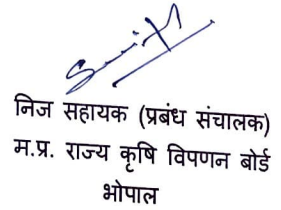 निज सहायक (प्रबंध संचालक)
म.प्र. राज्य कृषि विपणन बोर्ड
भोपाल